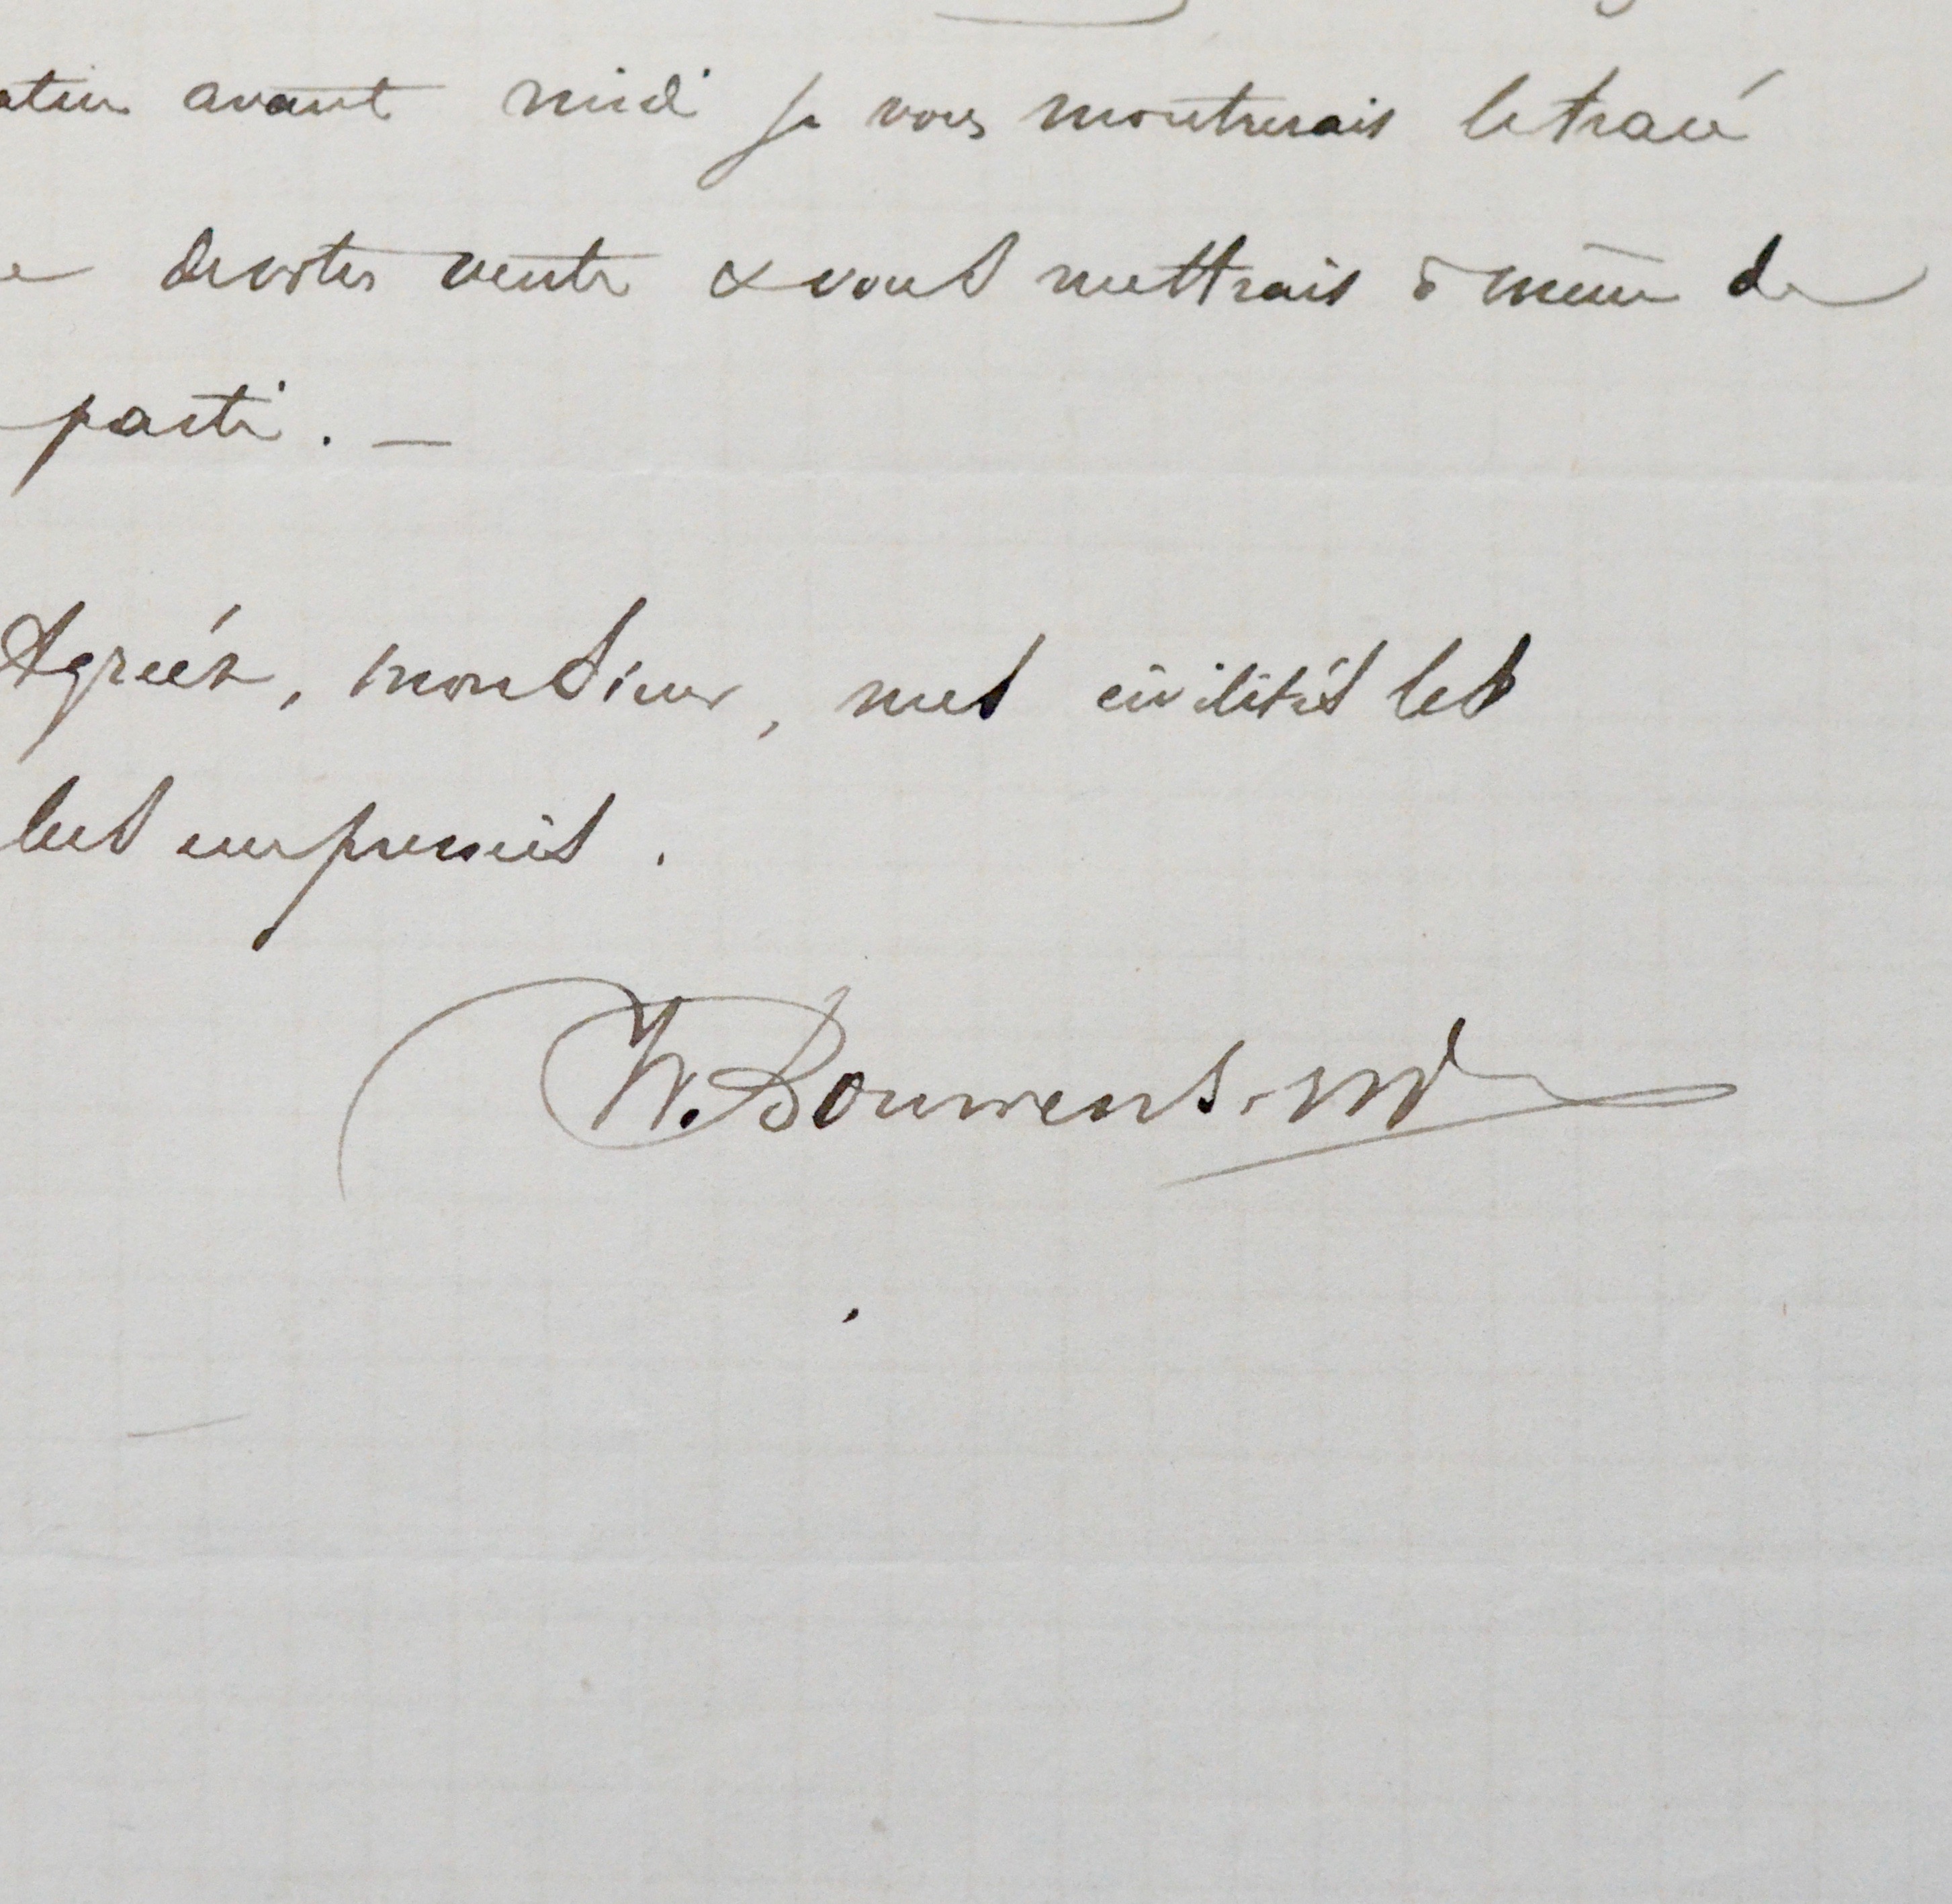 atin avant midi je vous montrerais le tracé
e de votre vente & vous mettrais à même de
parti. —
Agréez, monsieur, mes civilités les
lus empressés.
W. Bouwens. vd